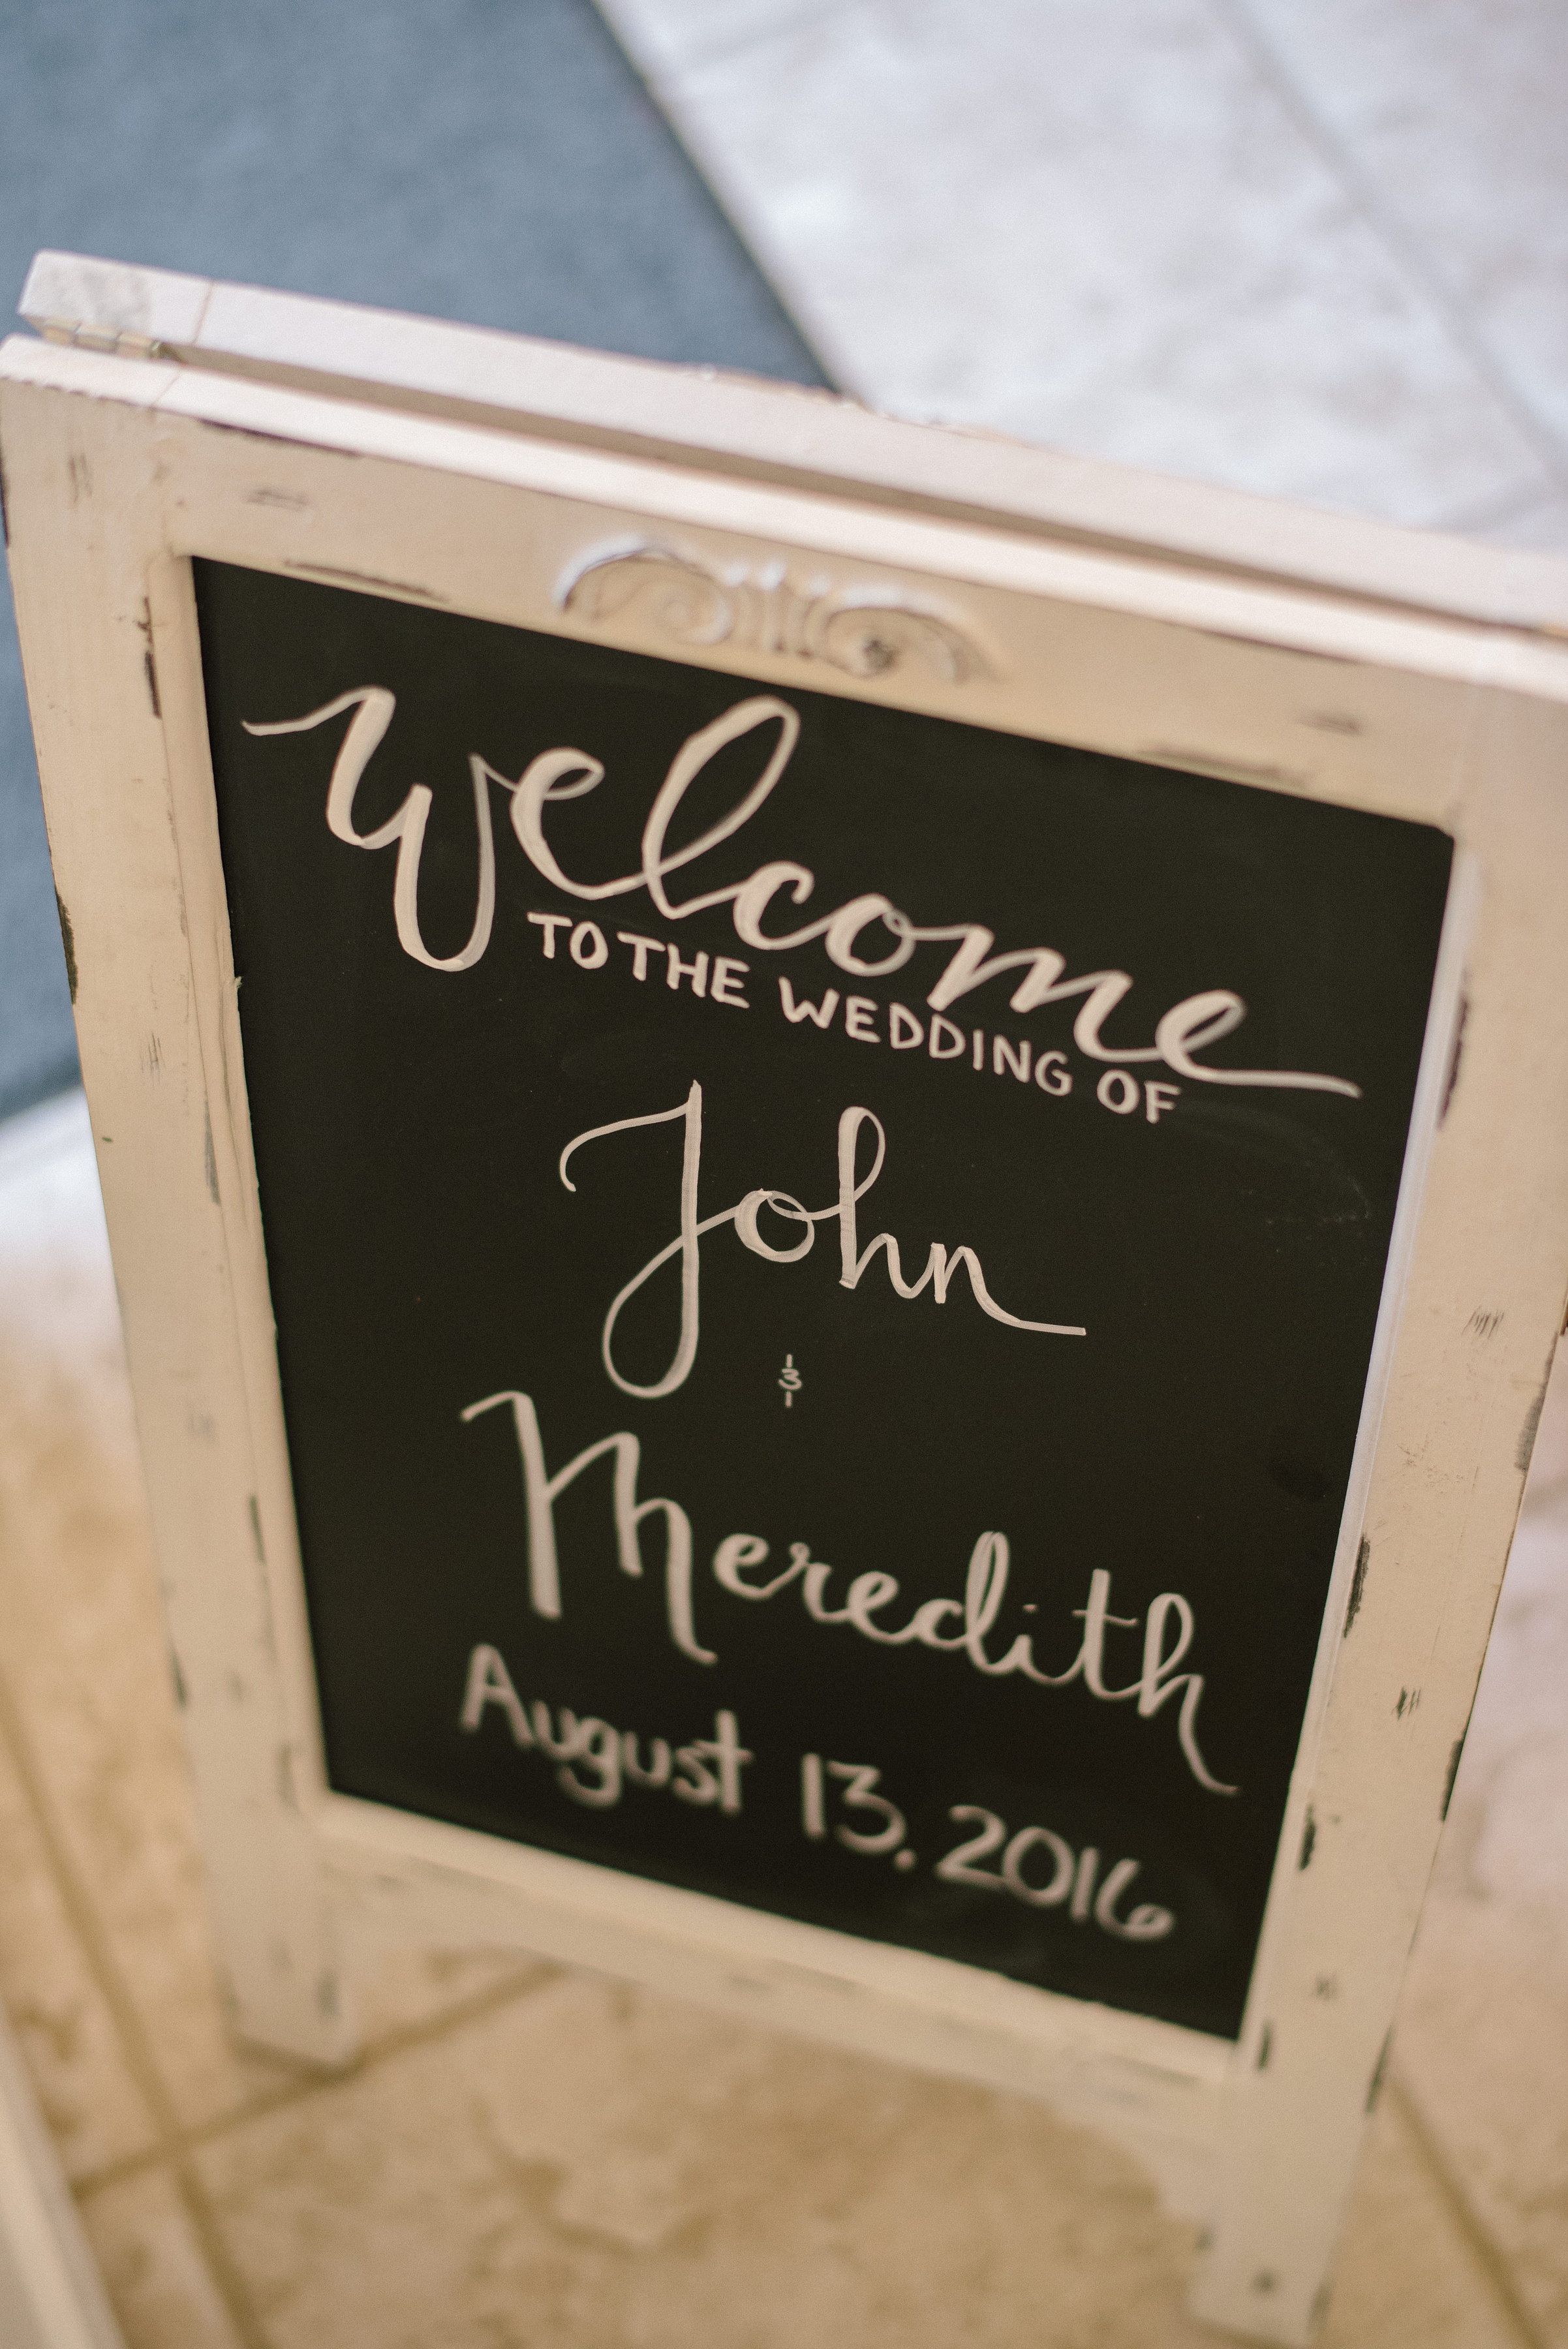 Welcome
TO THE WEDDING OF
John
&
Meredith
August 13. 2016